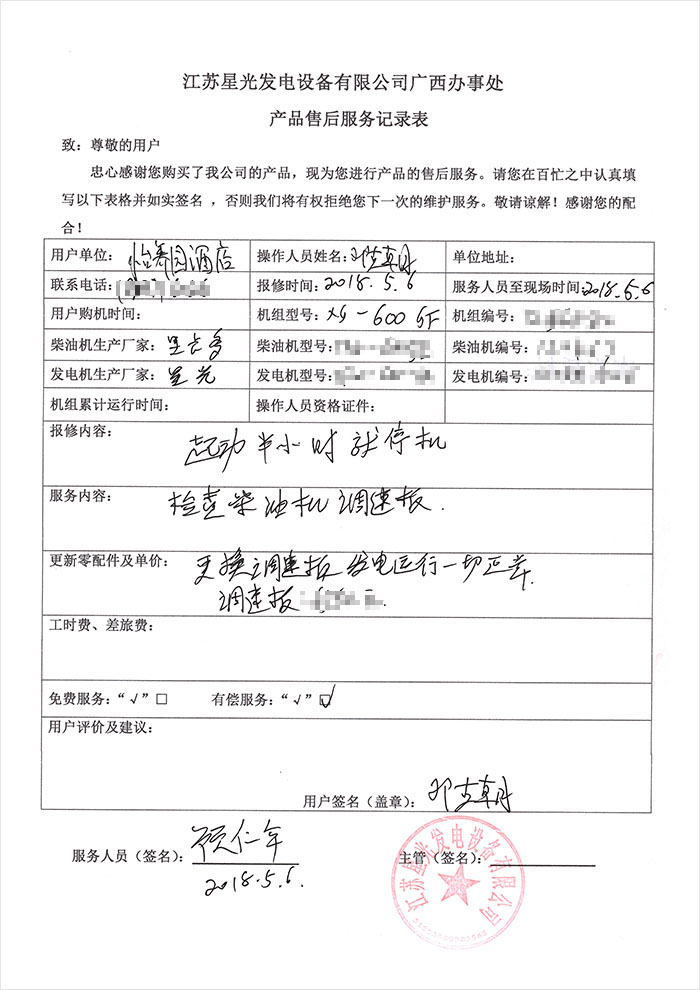 江苏星光发电设备有限公司广西办事处
产品售后服务记录表
致：尊敬的用户
忠心感谢您购买了我公司的产品，现为您进行产品的售后服务。请您在百忙之中认真填
写以下表格并如实签名 ，否则我们将有权拒绝您下一次的维护服务。敬请谅解！感谢您的配
合！
用户单位： 怡 园酒店 操作人员姓名： 单位地址：
联系电话： 报修时间：2018.5.6 服务人员至现场时间：2018.5.6
用户购机时间： 机组型号：XG-600GF 机组编号：
柴油机生产厂家： 柴油机型号： 柴油机编号：
发电机生产厂家：星光 发电机型号： 发电机编号：
机组累计运行时间： 操作人员资格证件：
报修内容：
起动半小时就停机
服务内容：
检查柴油机调速板.
更新零配件及单价： 更换调速板 发电运行一切正常.
调速板
工时费、差旅费：
免费服务：“√”□ 有偿服务：“√”☑
用户评价及建议：
用户签名（盖章）：
服务人员（签名）：顾仁年 主管（签名）：
2018.5.6.
江苏星光发电设备有限公司